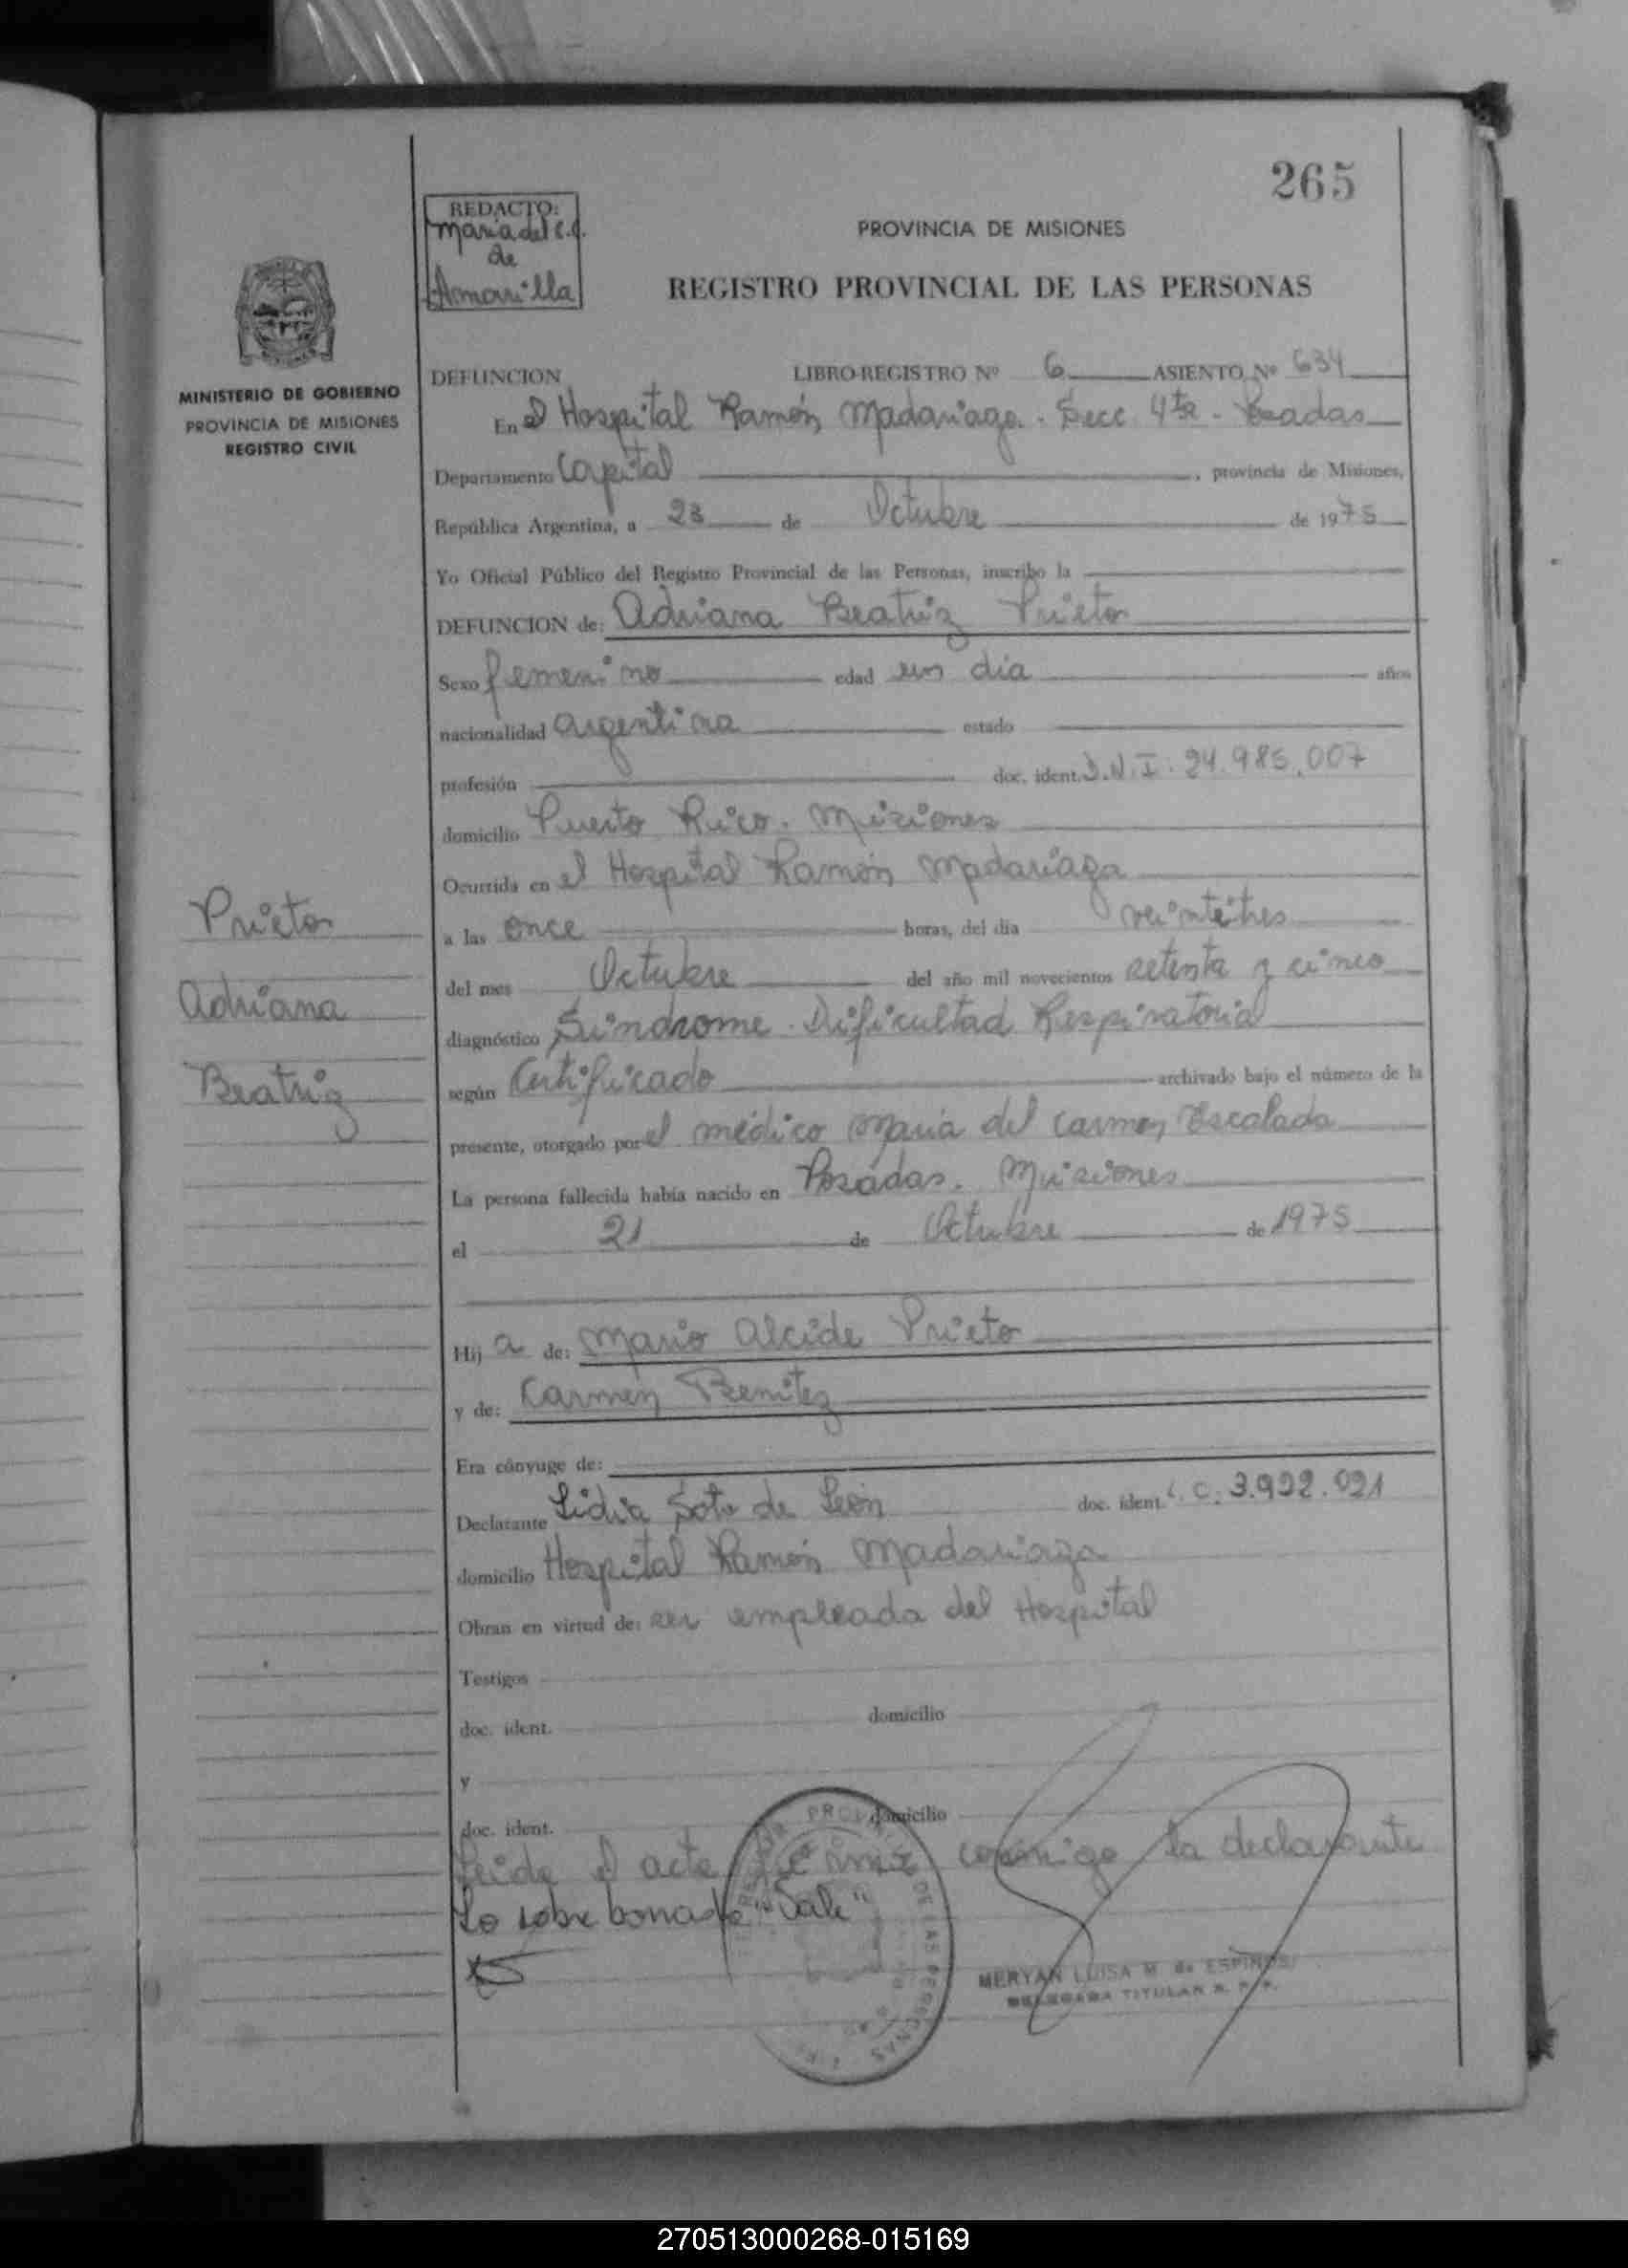 265
REDACTO:
Maria del C. G.
de
Amarilla
PROVINCIA DE MISIONES
REGISTRO PROVINCIAL DE LAS PERSONAS
MINISTERIO DE GOBIERNO
PROVINCIA DE MISIONES
REGISTRO CIVIL
DEFUNCION LIBRO-REGISTRO Nº 6 ASIENTO Nº 634
En el Hospital Ramón Madariaga - Secc. 4ta - Posadas
Departamento Capital, provincia de Misiones,
República Argentina, a 23 de Octubre de 1975
Yo Oficial Público del Registro Provincial de las Personas, inscribo la
DEFUNCION de: Adriana Beatriz Prieto
Sexo femenino edad un día años
nacionalidad argentina estado
profesión doc. ident. D.N.I. 24.985.007
domicilio Puerto Rico. Misiones
Ocurrida en el Hospital Ramón Madariaga
a las once horas, del día veintitres
del mes Octubre del año mil novecientos setenta y cinco
diagnóstico Síndrome Dificultad Respiratoria
según Certificado archivado bajo el número de la
presente, otorgado por el médico María del Carmen Escalada
La persona fallecida había nacido en Posadas. Misiones
el 21 de Octubre de 1975
Prieto
Adriana
Beatriz
Hij a de: Mario Alcide Prieto
y de: Carmen Benitez
Era cónyuge de:
Declarante Lidia Soto de León doc. ident. L.C. 3.922.021
domicilio Hospital Ramón Madariaga
Obran en virtud de: ser empleada del Hospital
Testigos
doc. ident. domicilio
y
doc. ident. domicilio
Leida el acta firma conmigo la declarante
Lo sobre borrado "Vale"
MERYAN LUISA M. de ESPINOSA
DELEGADA TITULAR R. P. P.
270513000268-015169